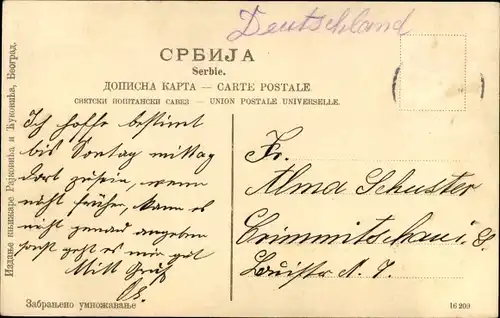 Deutschland
СРБИЈА
Serbie.
ДОПИСНА КАРТА — CARTE POSTALE
СВЕТСКИ ПОШТАНСКИ САВЕЗ — UNION POSTALE UNIVERSELLE.
Ich hoffe bestimmt
bis Sontag mittag
dort zu sein, wenn
nicht früher, kann es
nicht genau angeben
sonst geht es mir gut
Mitt Gruß
Fr.
Alma Schuster
Crimmitschau i. S.
Издање књижаре Рајковића и Ћуковића, Београд.
Забрањено умножавање
16 209